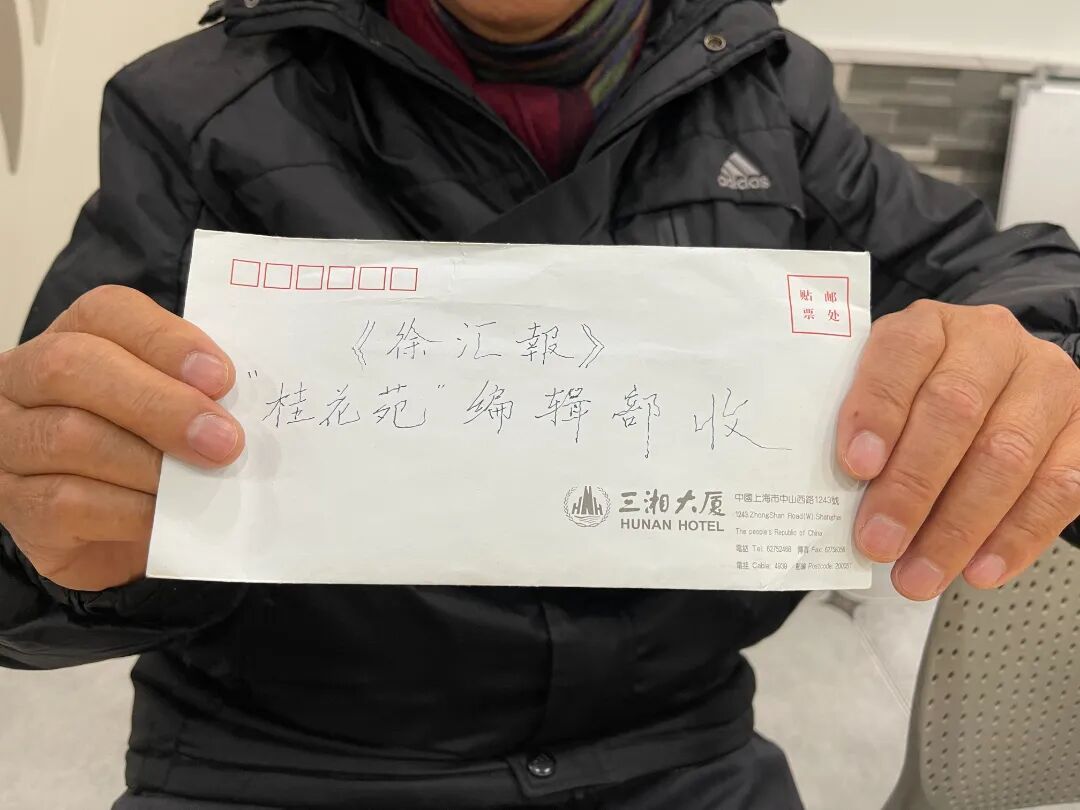 adidas
贴 邮
票 处
《徐汇報》
"桂花苑"编辑部收
三湘大厦
HUNAN HOTEL
中國上海市中山西路1243號
1243 ZhongShan Road(W).Shanghai
The people's Republic of China
電話 Tel: 62752468 傳真 Fax:
電挂 Cable: 4939 郵編 Postcode: